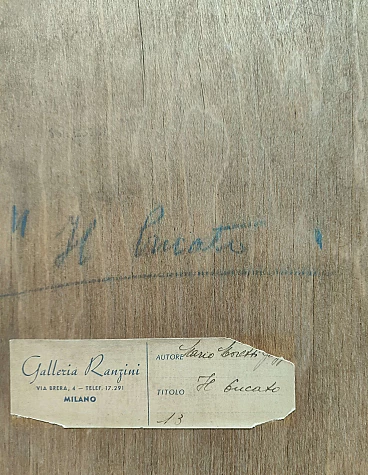 "Il bucato"
Galleria Ranzini
VIA BRERA, 4 — TELEF. 17.291
MILANO
AUTORE Mario Moretti
TITOLO Il bucato
13